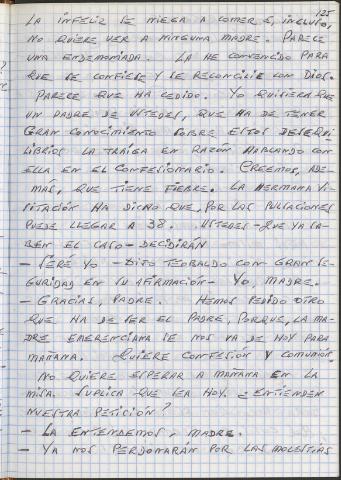 125
LA INFELIZ SE NIEGA A COMER E, INCLUSO,
NO QUIERE VER A NINGUNA MADRE. PARECE
UNA ENDEMONIADA. LA HE CONVENCIDO PARA
QUE SE CONFIESE Y SE RECONCILIE CON DIOS.
PARECE QUE HA CEDIDO. YO QUISIERA QUE
UN PADRE DE USTEDES, QUE HA DE TENER
GRAN CONOCIMIENTO SOBRE ESTOS DESEQUI
LIBRIOS LA TRAIGA EN RAZÓN HABLANDO CON
ELLA EN EL CONFESIONARIO. CREEMOS, ADE-
MAS, QUE TIENE FIEBRE. LA HERMANA VI-
SITACIÓN HA DICHO QUE, POR LAS PULSACIONES
PUEDE LLEGAR A 38. USTEDES - QUE YA SA-
BEN EL CASO - DECIDIRÁN
- SERÉ YO - DIJO TEOBALDO CON GRAN SE-
GURIDAD EN SU AFIRMACIÓN - YO, MADRE.
- GRACIAS, PADRE. HEMOS PEDIDO OTRO
QUE HA DE SER EL PADRE, PORQUE, LA MA-
DRE EMERENCIANA SE NOS VA DE HOY PARA
MAÑANA. QUIERE CONFESIÓN Y COMUNIÓN.
NO QUIERE ESPERAR A MAÑANA EN LA
MISA. SUPLICA QUE SEA HOY. ¿ENTIENDEN
NUESTRA PETICIÓN?
- LA ENTENDEMOS, MADRE.
- YA NOS PERDONARÁN POR LAS MOLESTIAS